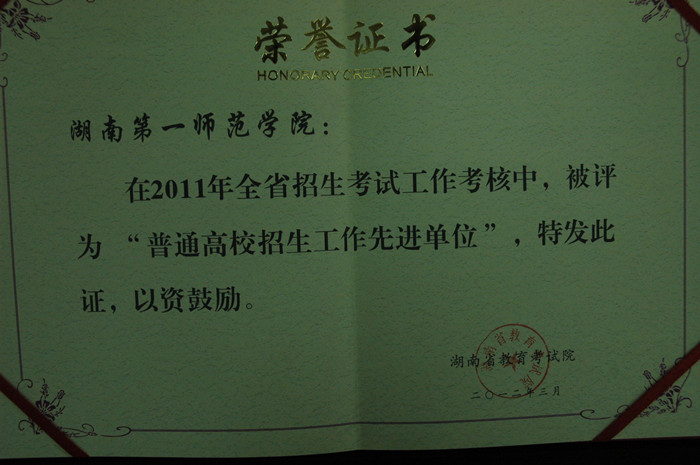 荣誉证书
HONORARY CREDENTIAL
湖南第一师范学院：
在2011年全省招生考试工作考核中，被评
为 “普通高校招生工作先进单位”，特发此
证，以资鼓励。
湖南省教育考试院
二〇一二年三月